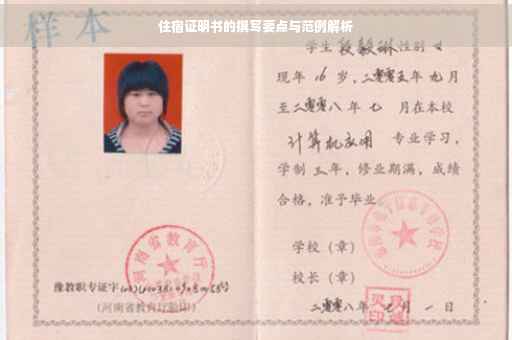 住宿证明书的撰写要点与范例解析
样本
学生段毅琳性别女
现年16岁，二零零五年九月
至二零零八年七月在本校
计算机应用专业学习，
学制三年，修业期满，成绩
合格，准予毕业。
学校（章）
校长（章）
二零零八年七月一日
河南省教育厅
豫教职专证字
(河南省教育厅验印)